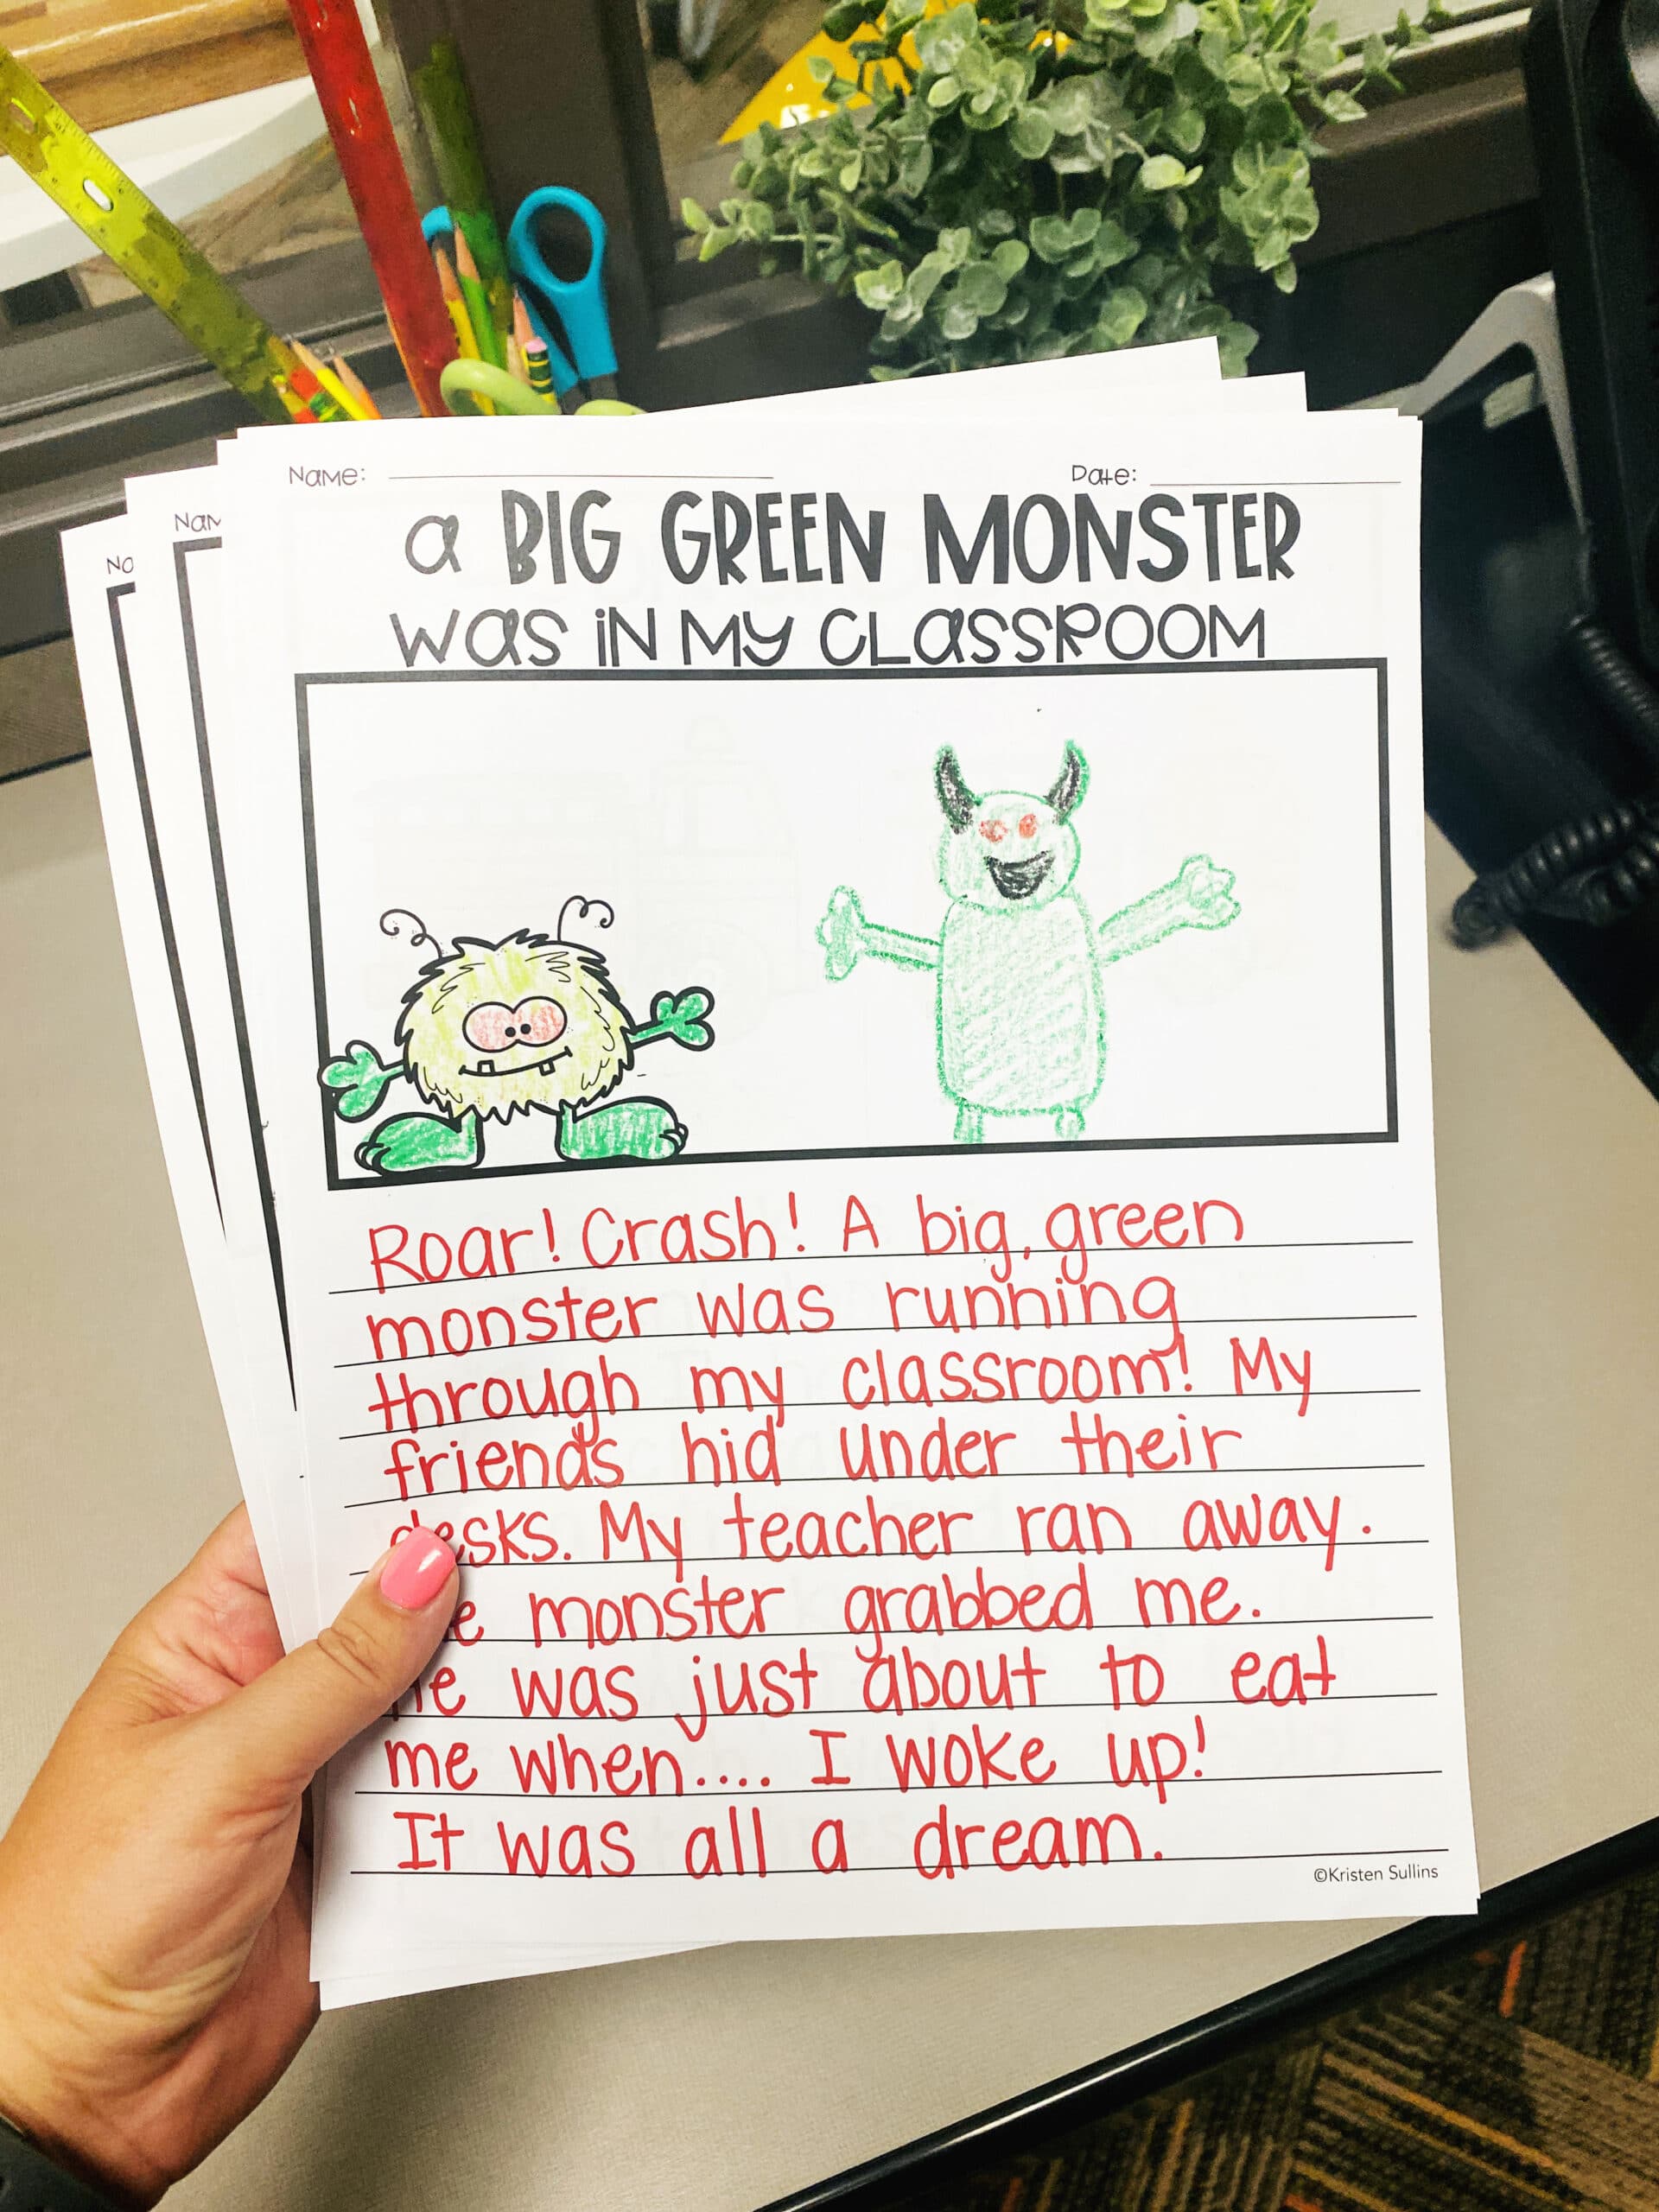 Name: Date:
a BIG GREEN MONSTER
was iN My CLassROOM
Roar! Crash! A big, green
monster was running
through my classroom! My
friends hid under their
desks. My teacher ran away.
monster grabbed me.
was just about to eat
me when.... I woke up!
It was all a dream.
©Kristen Sullins